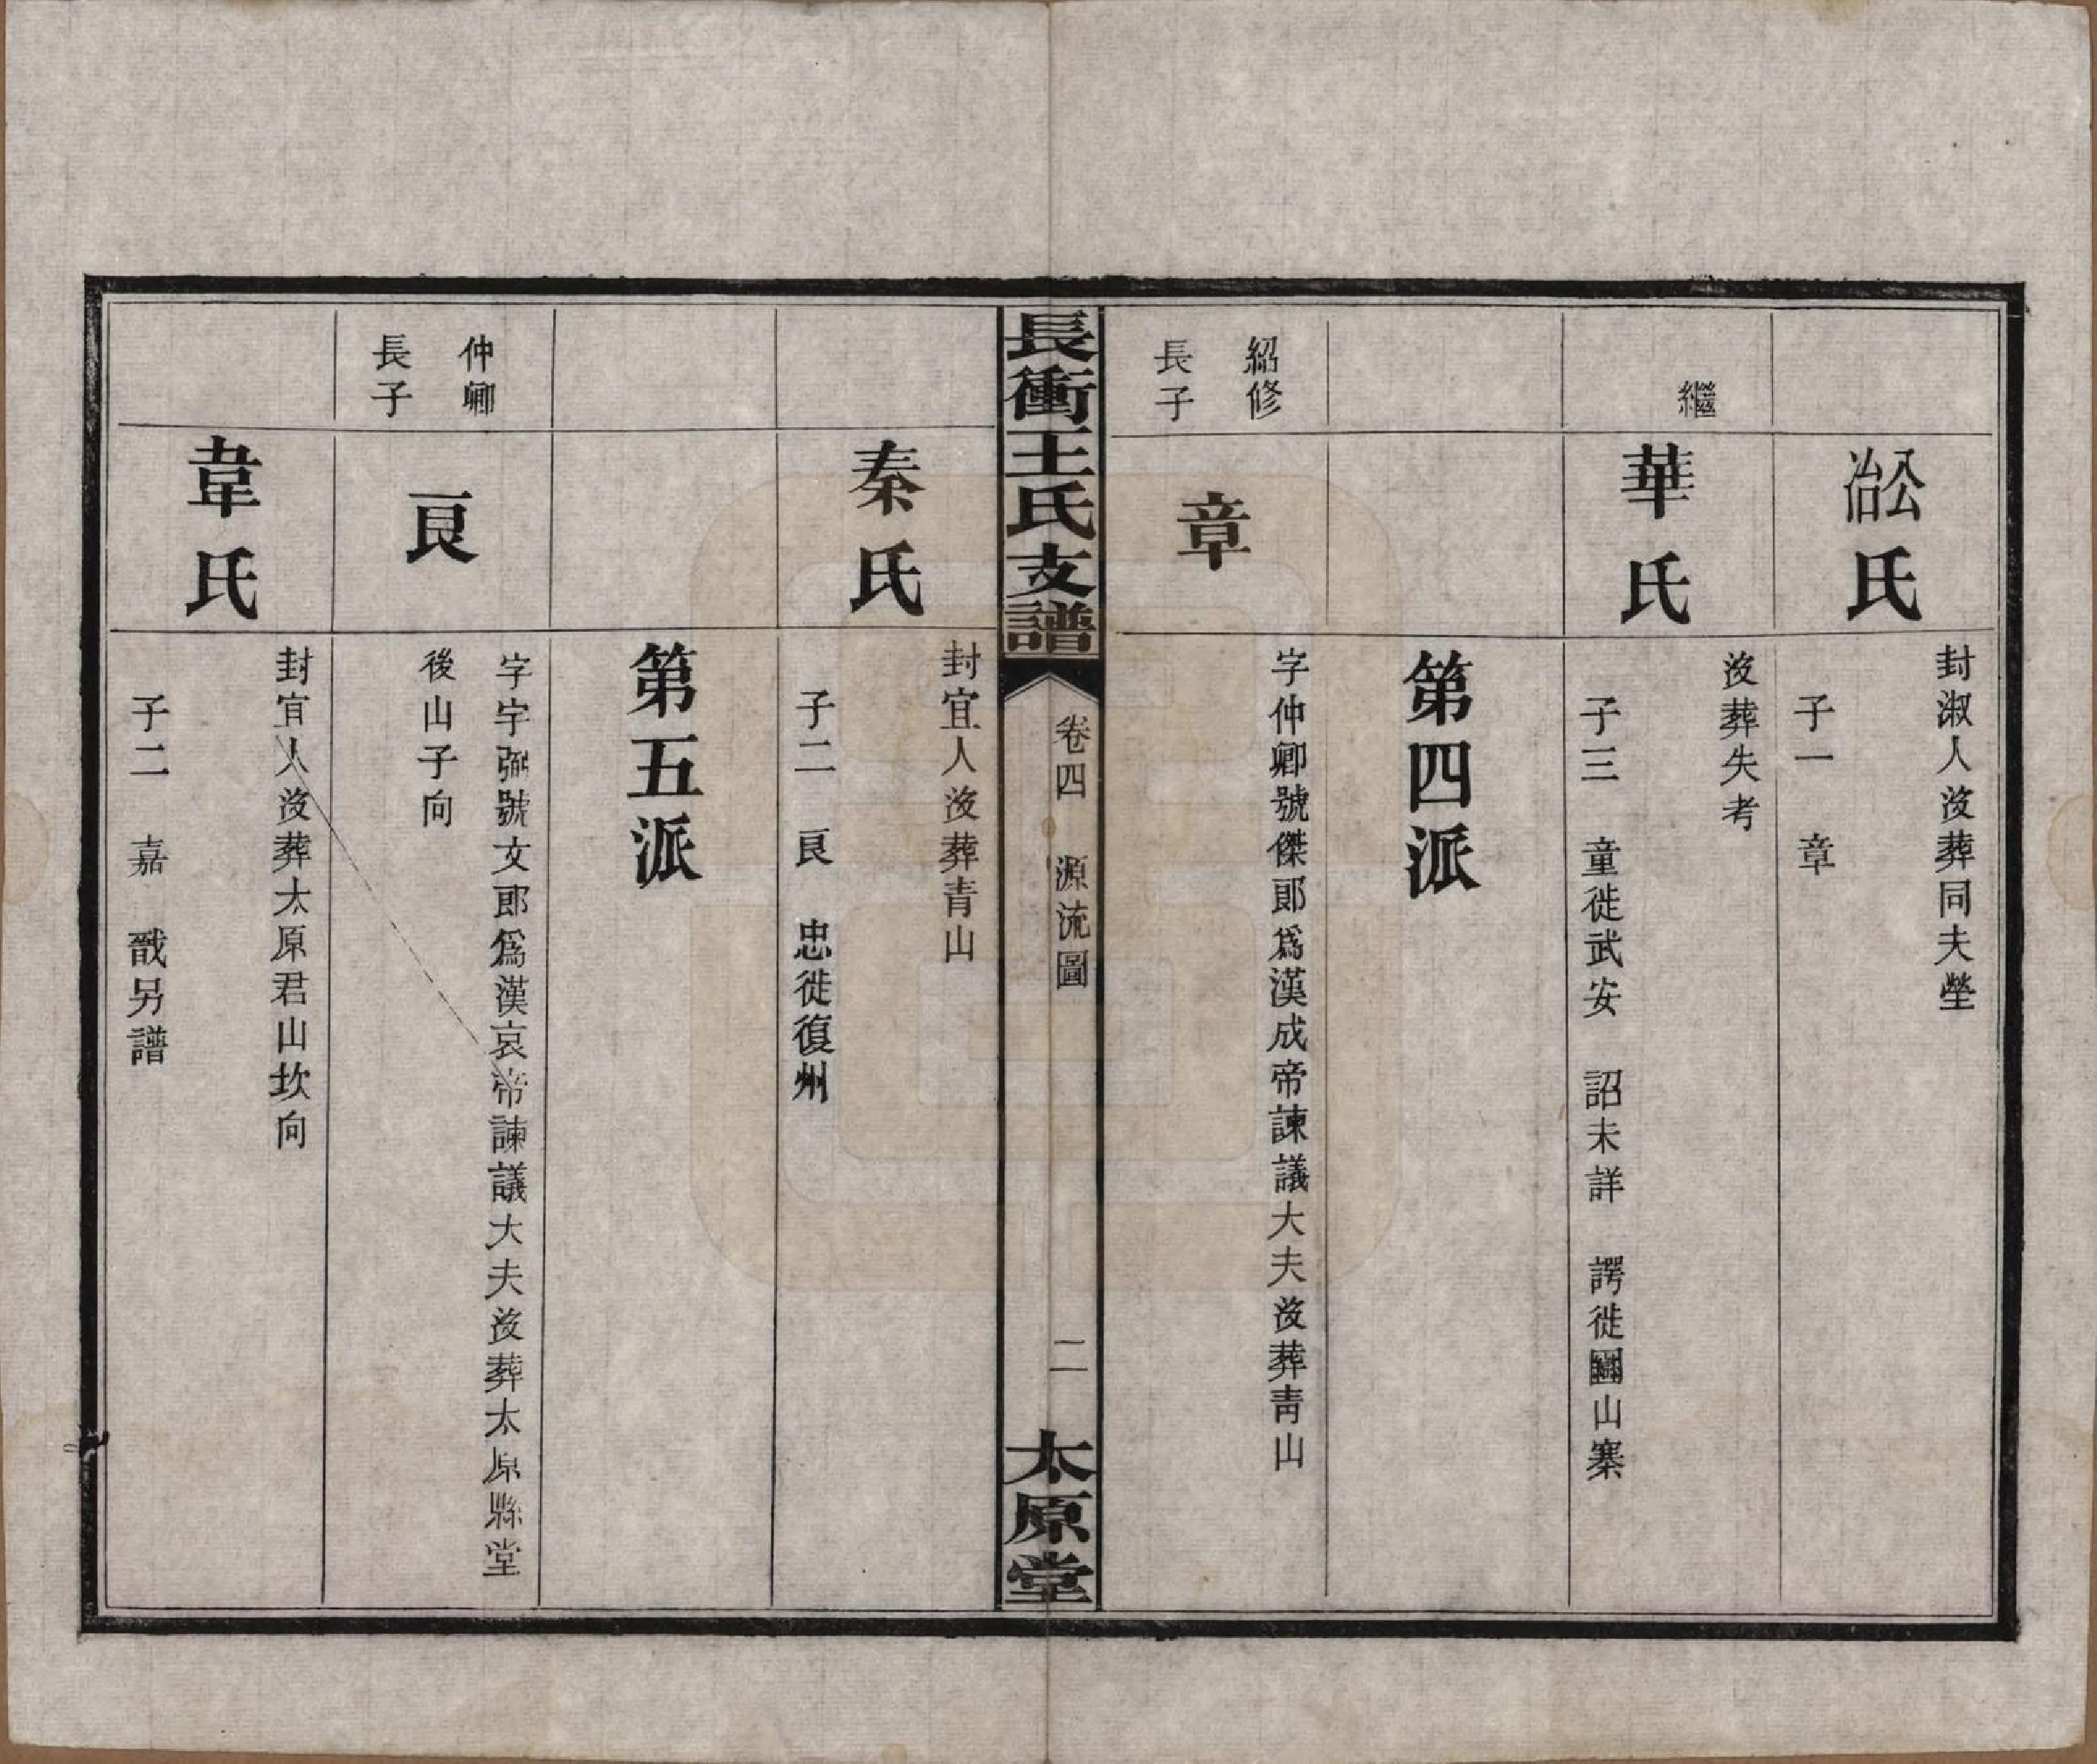 公冶氏
封淑人沒葬同夫塋
子一　章
繼
華氏
沒葬失考
子三　童徙武安　詔未詳　諤徙圌山寨
第四派
紹修
長子
章
字仲卿號傑郎爲漢成帝諫議大夫沒葬青山
長衝王氏支譜
卷四　源流圖
二
太原堂
秦氏
封宜人沒葬青山
子二　良　忠徙復州
第五派
仲卿
長子
良
字字弼號文郎爲漢哀帝諫議大夫沒葬太原縣堂
後山子向
韋氏
封宜人沒葬太原君山坎向
子二　嘉　戩另譜